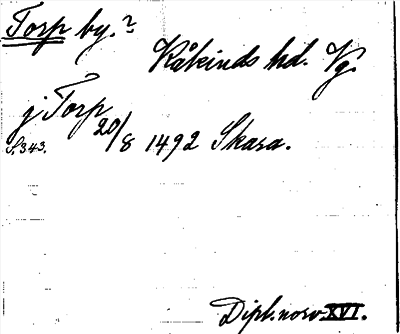 Torp by.?
Kåkinds hd. Vg.
j Torp
S. 343. 20/8 1492 Skara.
Dipl. norv. XVI.